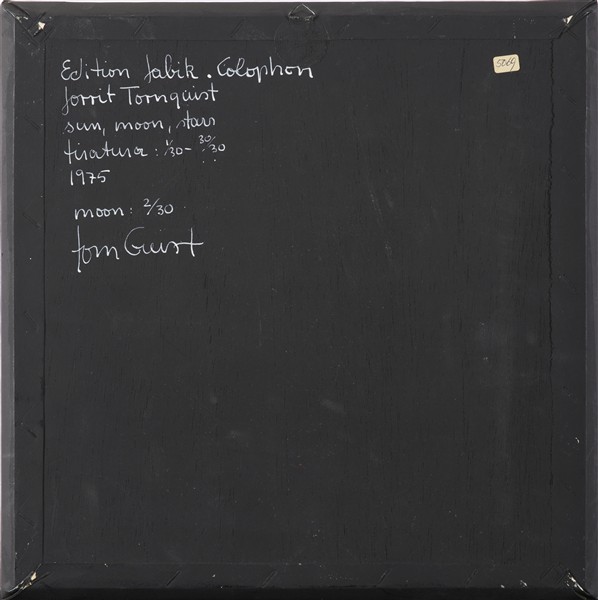 Edition fabik . Colophon
Jorrit Tornquist
sun, moon, stars
tiratura : 1/30 - 30/30
1975
moon : 2/30
TornQuist
5069